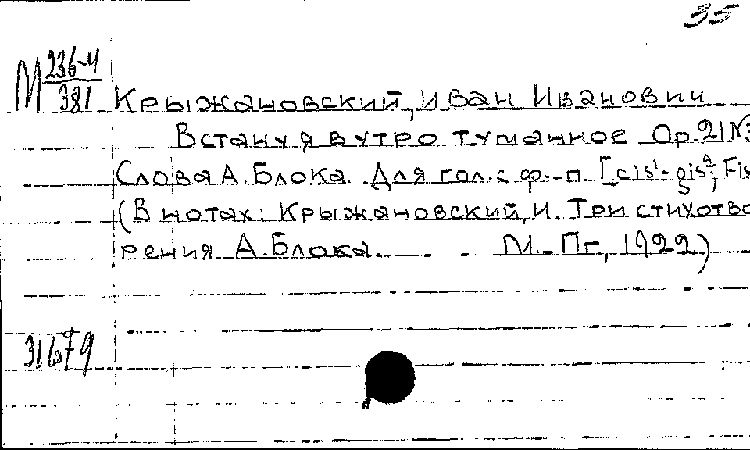 35
М 236-4/381
Крыжановский, Иван Иванович
Встану я в утро туманное Ор.21 №3
Слова А. Блока. Для гол. с ф.-п. [cis¹-gis²; Fis
(В нотах: Крыжановский, И. Три стихотво
рения А. Блока. М.-Пг, 1922)
31679